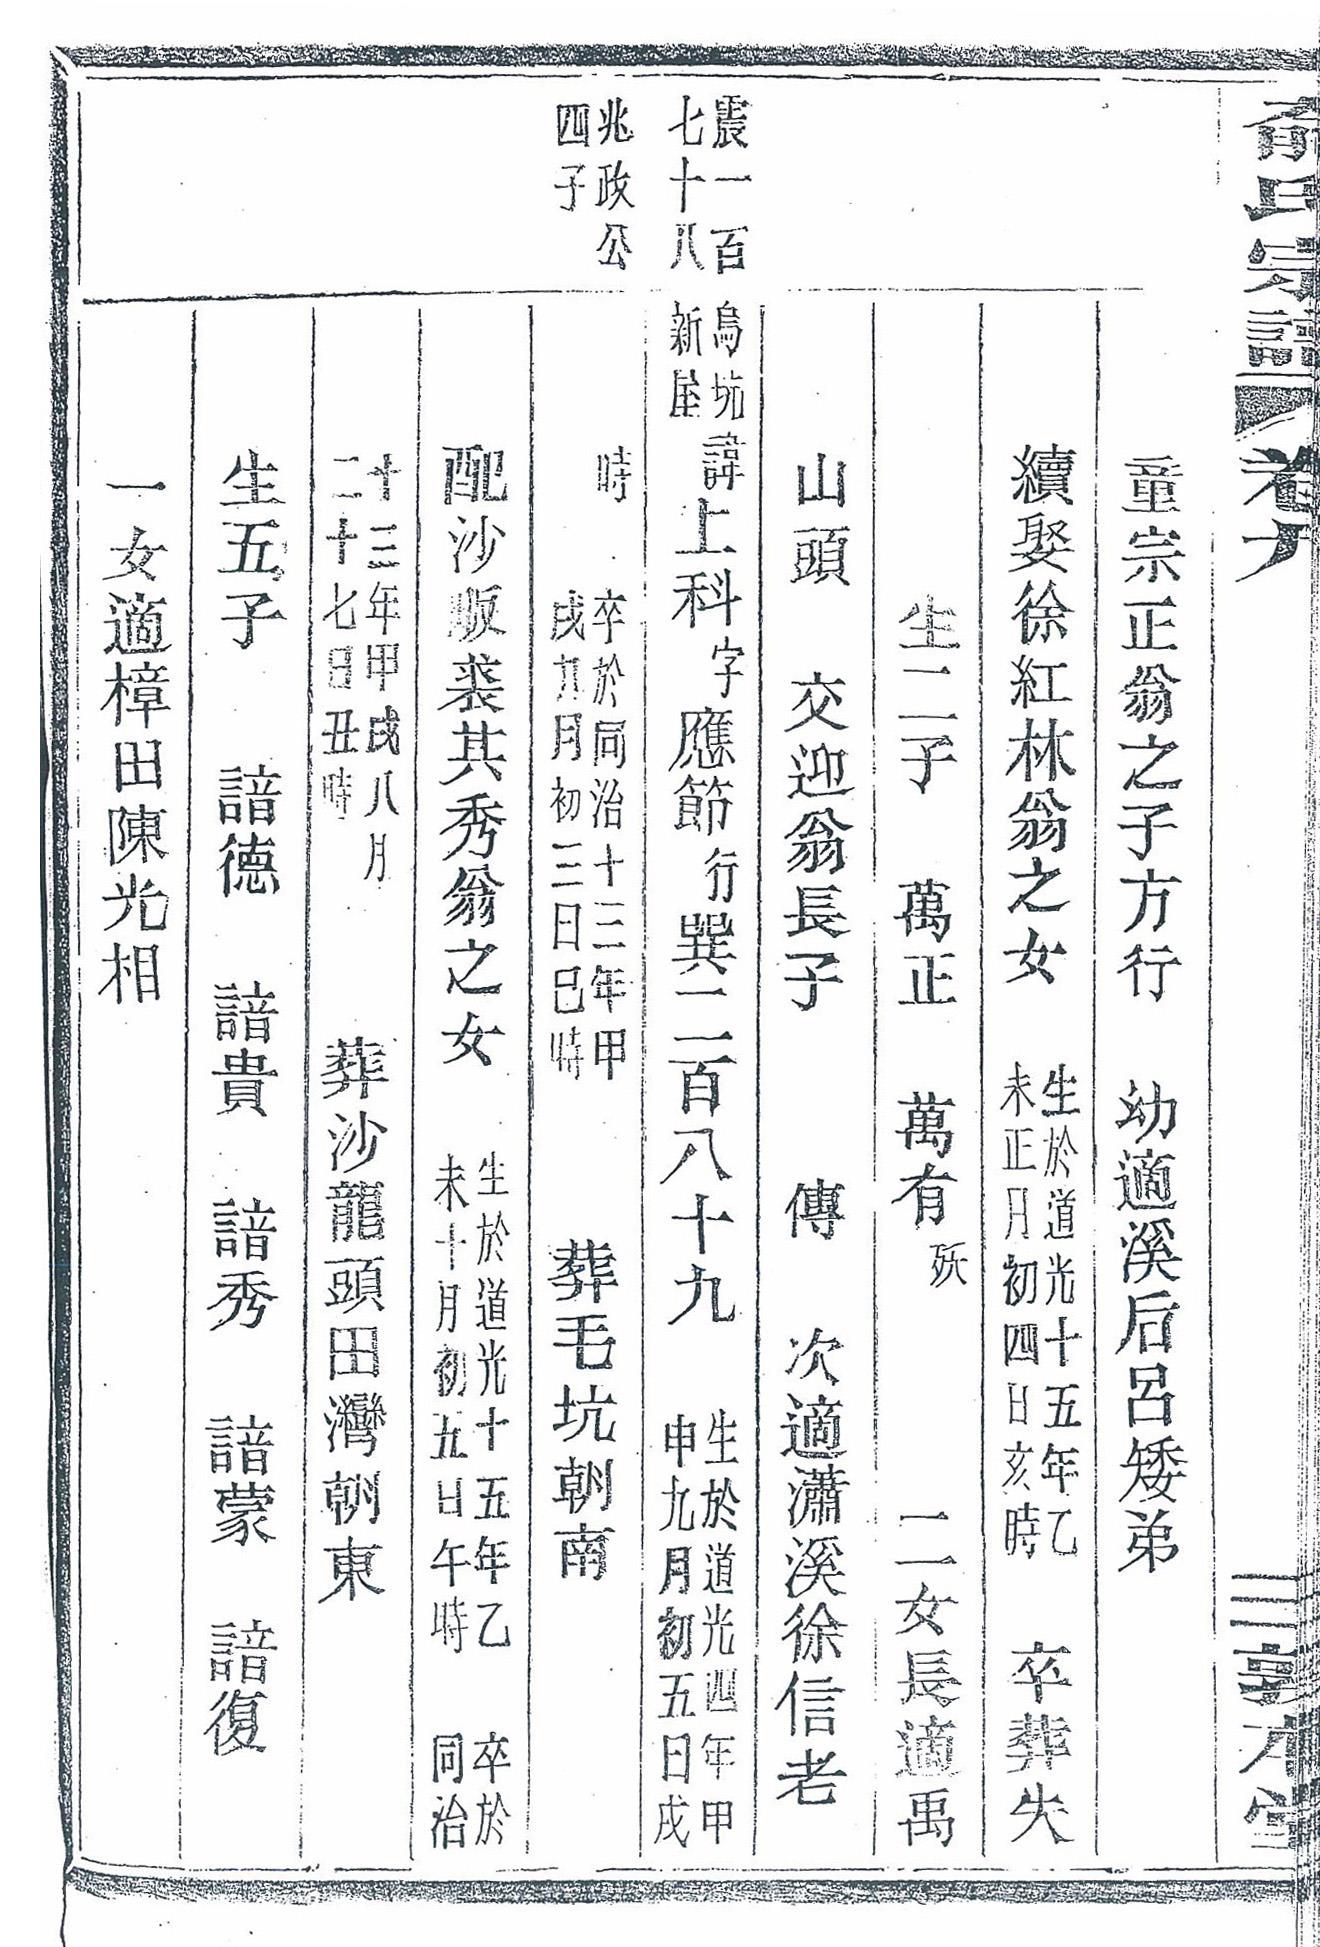 俞氏宗譜 卷九 三 敦本堂
童宗正翁之子方行 幼適溪后呂矮弟
續娶徐紅林翁之女 生於道光十五年乙
未正月初四日亥時 卒葬失
生二子 萬正 萬有 殀 二女長適禹
山頭 交迎翁長子 傳 次適瀟溪徐信老
震一百
七十八
烏坑
新屋
諱上科字應節行巽一二百八十九 生於道光四年甲
申九月初五日戌
兆政公
四子
時 卒於同治十三年甲
戌九月初三日巳時 葬毛坑朝南
配沙畈裘其秀翁之女 生於道光十五年乙
未十月初五日午時 卒於
同治
十三年甲戌八月
二十七日丑時 葬沙龍頭田灣朝東
生五子 諳德 諳貴 諳秀 諳蒙 諳復
一女適樟田陳光相